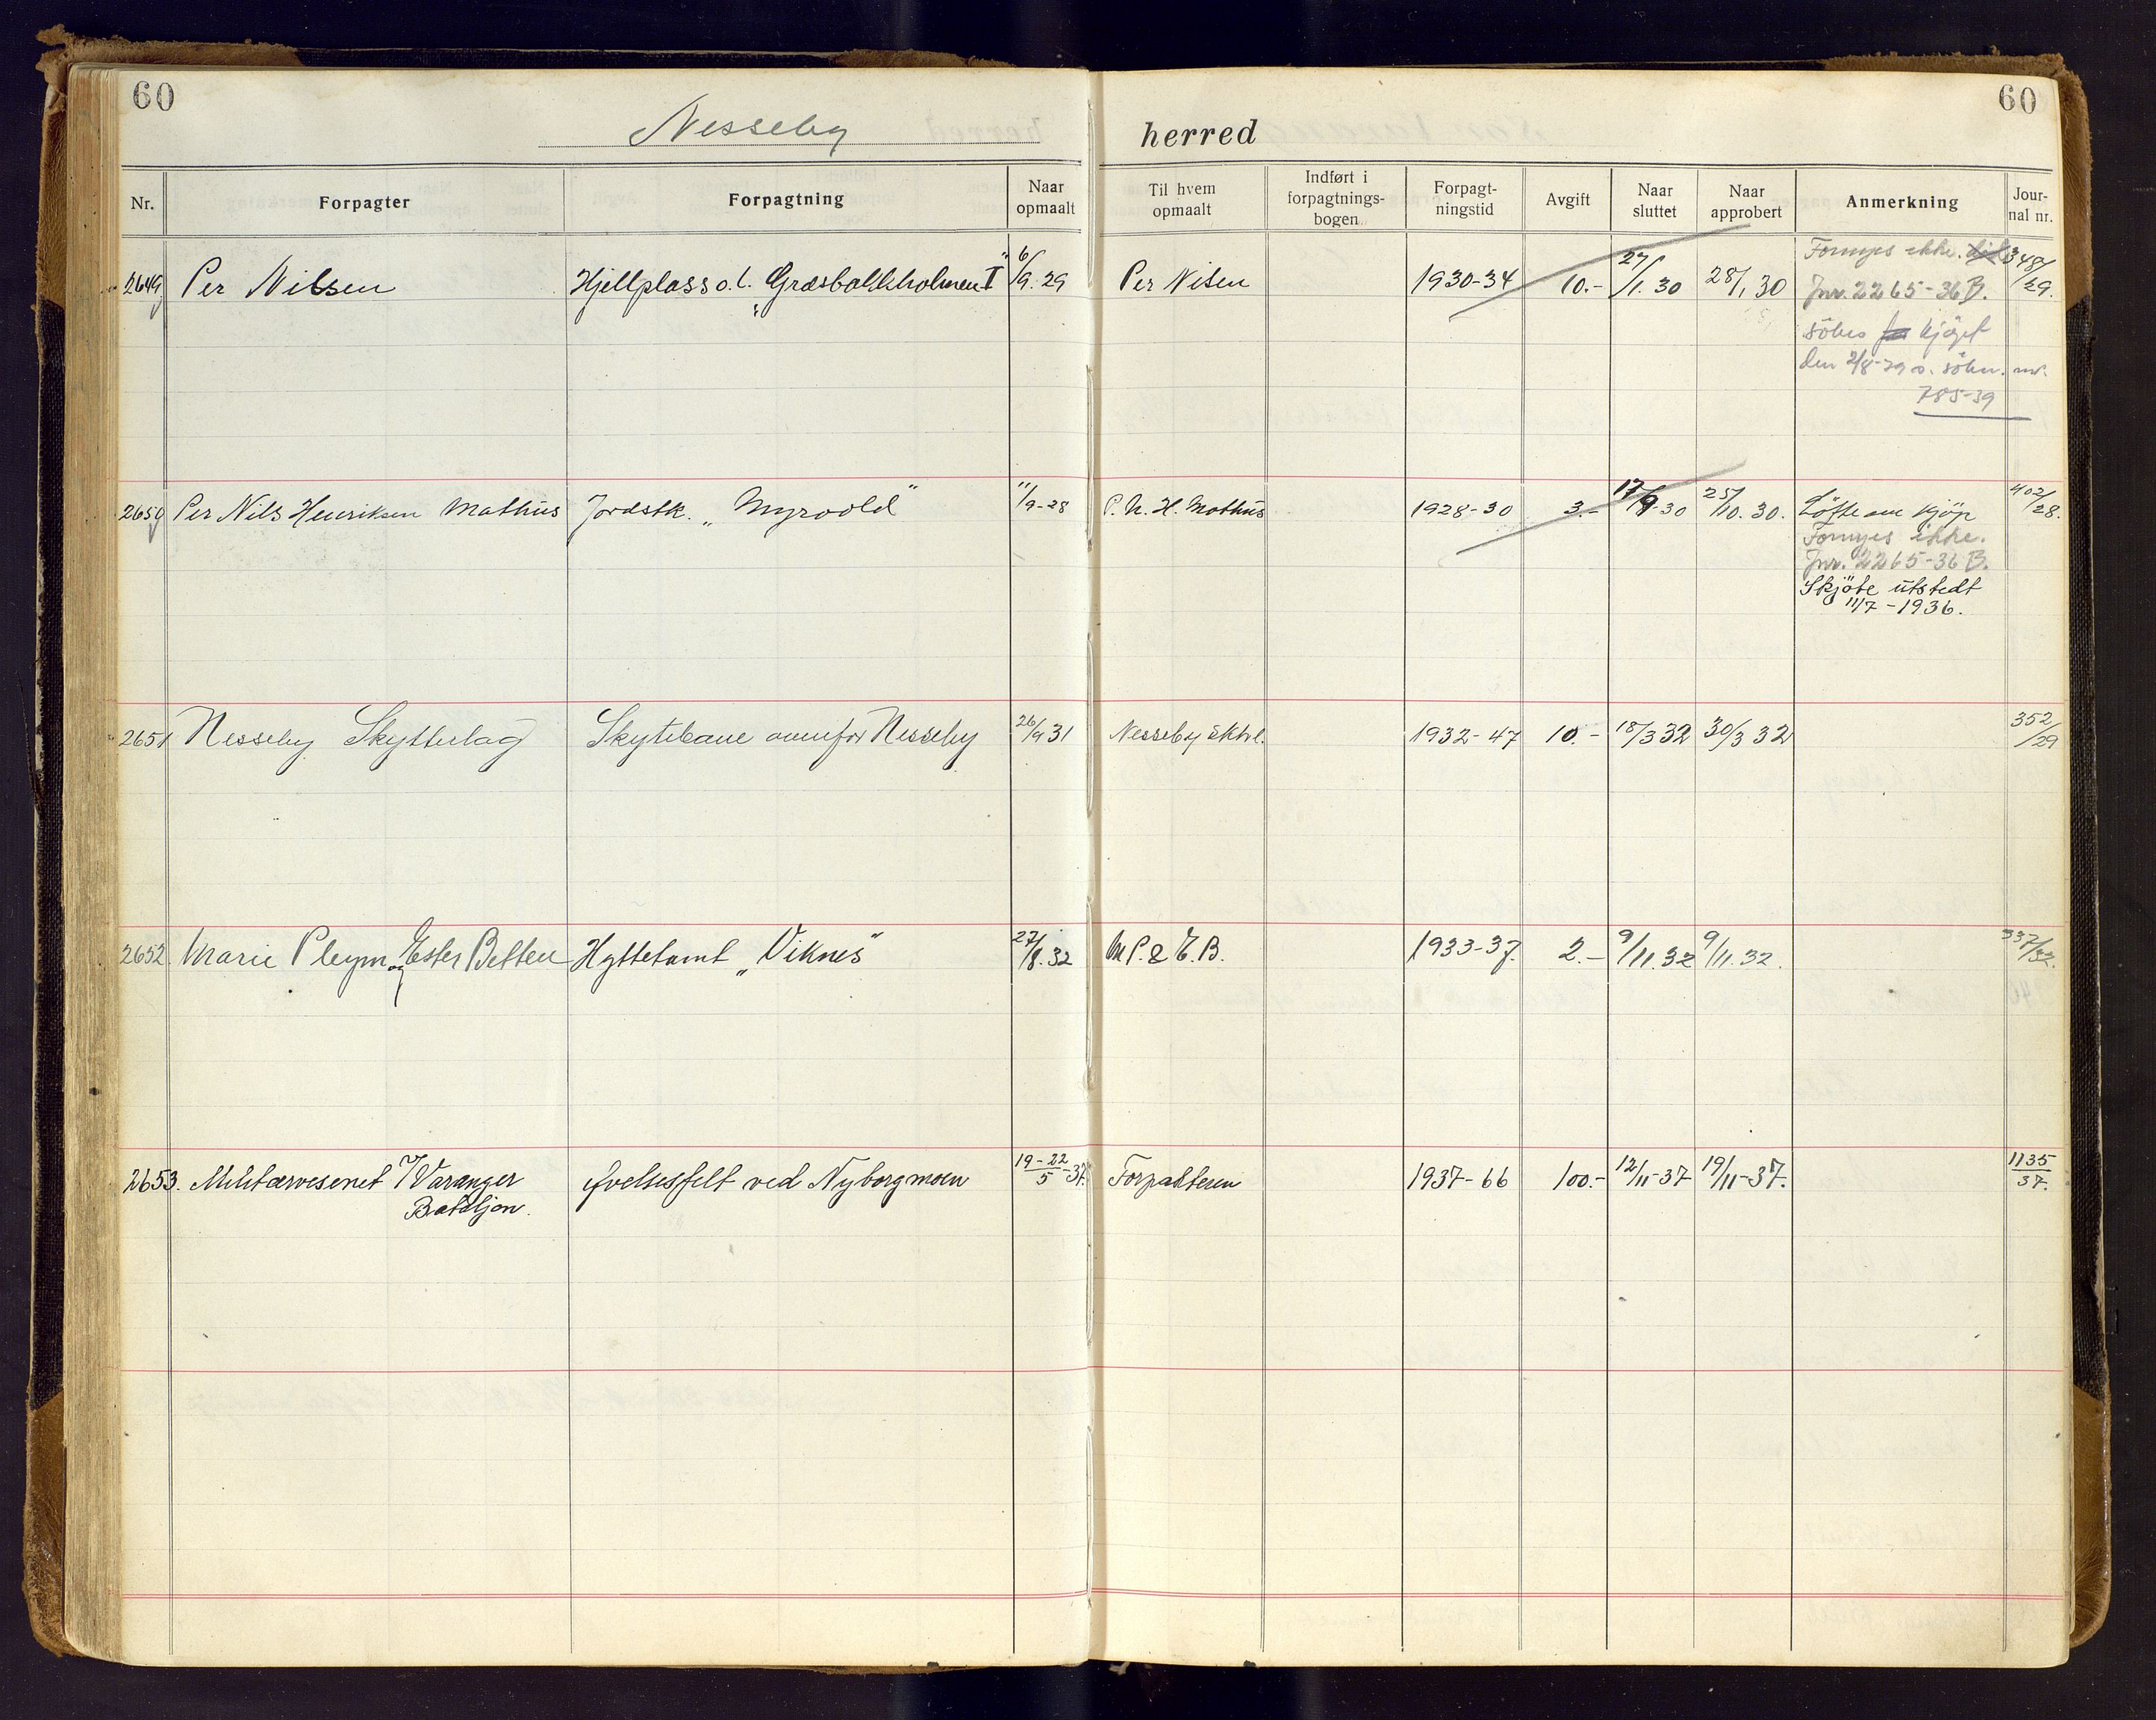 60
60
Nesseby herred
Nr. Forpagter Forpagtning Naar opmaalt Til hvem opmaalt Indført i forpagtnings-bogen Forpagt-ningstid Avgift Naar sluttet Naar approbert Anmerkning Jour-nal nr.
2649 Per Nilsen Hjellplass o.l. „Græsbakkholmen I" 6/9.29 Per Nilsen 1930-34 10.- 27/1.30 28/1 30 Fornyes ikke. 348/29.
Jnr. 2265-36 B.
søkes kjøpt
den 2/8-39 s. søkn. nr.
785-39
2650 Per Nils Henriksen Mathus Jordstk. „Myrvold" 11/9-28 P. N. H. Mathus 1928-30 3.- 17/9-30 25/10.30. Löfte om kjöp 402/28.
Fornyes ikke.
Jnr. 2265-36 B.
Skjöte utstedt
11/7-1936.
2651 Nesseby Skytterlag Skytebane ovenfor Nesseby 26/9 31 Nesseby sktrl. 1932-47 10.- 18/3 32 30/3 32 352/29
2652. Marie Pleym og Ester Betten Hyttetomt „Viknes" 27/8.32 M P. & E. B. 1933-37. 2.- 9/11.32 9/11.32. 337/32.
2653. Militærvesenet v/ Varanger Øvelsesfelt ved Nyborgmoen 19-22/5-37. Forpakteren 1937-66 100.- 12/11-37 19/11-37. 1135/37.
Bataljon.